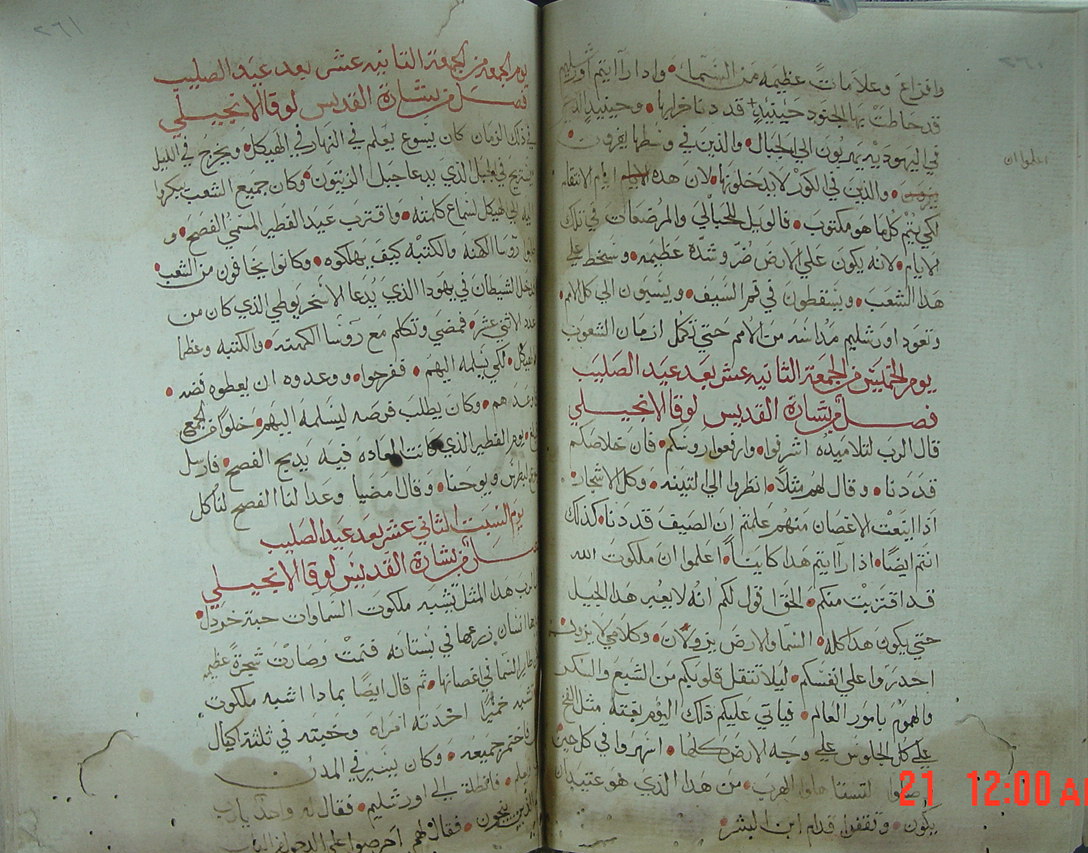 ٢٦٠
وافزاع وعلامات عظيمه من السما • واذا راايتم اورشليم
قد حاطت بها الجنود حينيذٍ قد دنا خرابها • وحينيذٍ الذين
في اليهوديه يهربون الي الجبال • والذين في وسطها يفرون
اعلموا ان
والذين في الكور لا يدخلوها • لان هذه ايام الانتقام
لكي يتم كلما هو مكتوب • فالويل للحبالي والمرضعات في تلك
الايام • لانه يكون علي الارض ضُرّ وشدة عظيمه • وسخط علي
هذا الشعب • ويسقطون في فم السيف • ويسبون الي كل الامم •
وتعود اورشليم مداسه من الامم حتي تكمل ازمان الشعوب
يوم الخميس من الجمعة الثانيه عشر بعد عيد الصليب
فصل من بشارة القديس لوقا الانجيلي
قال الرب لتلاميذه اشرفوا • وارفعوا روسكم • فان خلاصكم
قد دنا • وقال لهم مثلاً • انظروا الي التينه • وكل الاشجار •
اذا اينعت الاغصان منهم علمتم ان الصيف قد دنا • كذلك
انتم ايضًا • اذا راايتم هذا كاينًا • اعلموا ان ملكوت الله
قد اقتربت منكم • الحق اقول لكم انه لا يعبر هذا الجيل
حتي يكون هذا كله • السما والارض يزولان • وكلامي لا يزول •
احذروا علي انفسكم • ليلا تثقل قلوبكم من الشبع والسكر
والهموم بامور العالم • فياتي عليكم ذلك اليوم بغتة مثل الفخ
علي كل الجلوس علي وجه الارض كلها • اسهروا في كل حين
لتستاهلوا الهرب • من هذا الذي هو عتيد ان
يكون • وتقفوا قدام ابن البشر •
٢٦١
يوم الجمعة من الجمعة الثانيه عشر بعد عيد الصليب
فصل من بشارة القديس لوقا الانجيلي
في ذلك الزمان كان يسوع يعلم في النهار في الهيكل • ويخرج في الليل
الذي يدعا جبل الزيتون • وكان جميع الشعب يبكروا
اليه الي الهيكل لسماع كلامه • واقترب عيد الفطير المسمي الفصح • و
روسا الكهنه والكتبه كيف يهلكوه • وكانوا يخافون من الشعب •
فدخل الشيطان في يهوذا الذي يدعا الاسخريوطي الذي كان من
عدد الاثني عشر • فمضي وتكلم مع روسا الكهنه • والكتبه وعظما
الهيكل • لكي يسلمه اليهم • ففرحوا • ووعدوه ان يعطوه فضه •
وكان يطلب فرصه ليسلمه اليهم • خلوا من الجمع
يوم الفطير الذي كانت العاده فيه يذبح الفصح • فارسل
بطرس ويوحنا • وقال امضيا وعدا لنا الفصح لناكل
يوم السبت الثاني عشر بعد عيد الصليب
فصل من بشارة القديس لوقا الانجيلي
هذا المثل تشبه ملكوت السماوات حبة خردل •
انسان زرعها في بستانه فنمت وصارت شجرةً عظيمه
السما في اغصانها • ثم قال ايضًا بماذا اشبه ملكوت
تشبه خميرًا اخذته امراه وخبته في ثلثة اكيال
فاختمر جميعه • وكان يسير في المدن
الي اورشليم • فقال له واحد يارب
ينجون • فقال لهم احرصوا علي الدخول من الباب